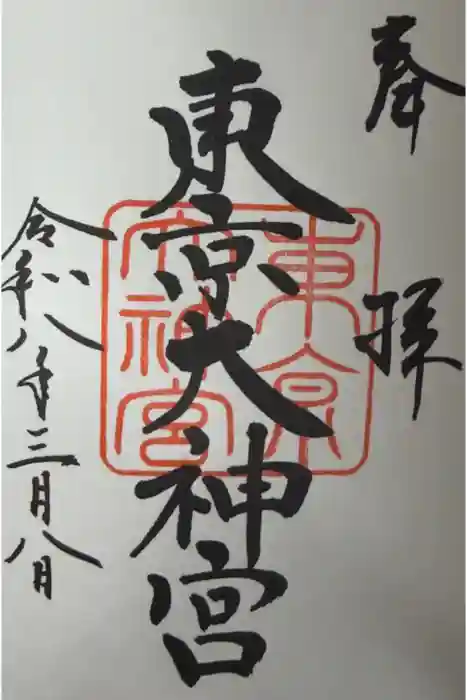 奉拝
東京大神宮
東京大神宮
令和八年三月八日